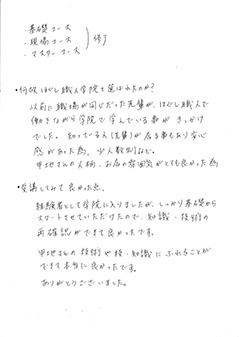 ・基礎コース
・現場コース
・マスターコース
修了
・何故ほぐし職人学院を選ばれたのか?
以前に職場が同じだった先輩が、ほぐし職人で
働きながら学院で学んでいる事がきっかけ
でした。知っている人(先輩)が居る事もあり安心
感があった為。少人数制など。
甲地さんの人柄、お店の雰囲気がとても良かった為
・受講してみて良かった点。
経験者として学院に入りましたが、しっかり基礎から
スタートさせていただけたので、知識・技術の
再確認ができて良かったです。
甲地さんの技術や技・知識にふれることが
できて本当に良かったです。
ありがとうございました。